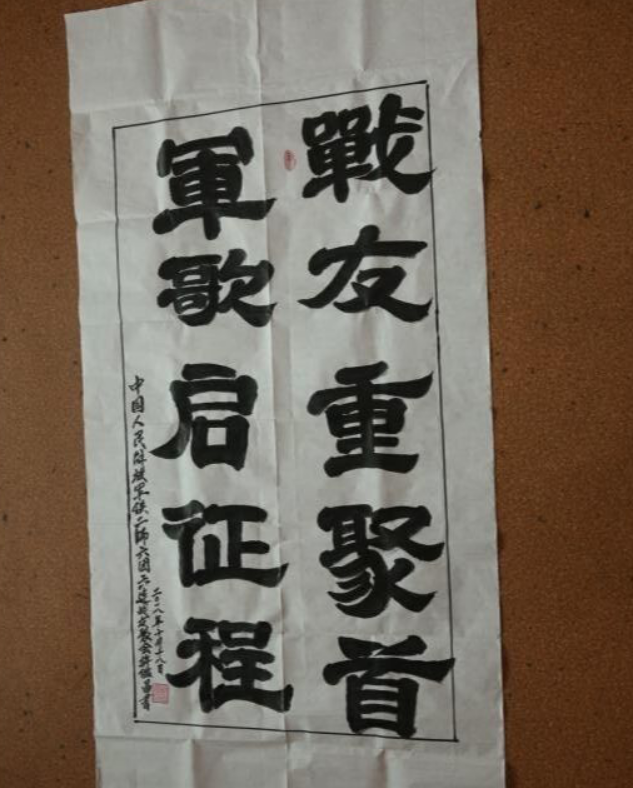 戰友重聚首
軍歌启征程
中国人民解放军铁二师六团六连战友聚会许
昌書
二〇一八年十月十八日